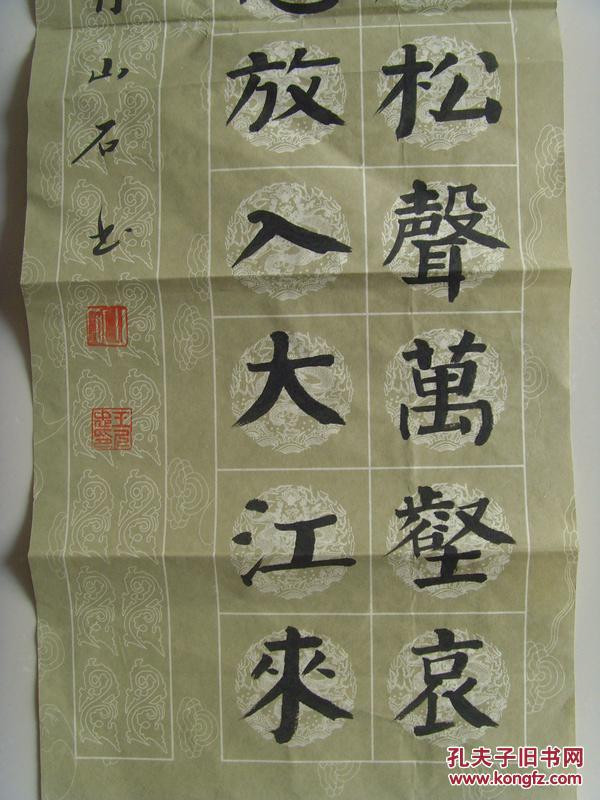 松聲萬壑哀
放入大江來
山石书
孔夫子旧书网
www.kongfz.com